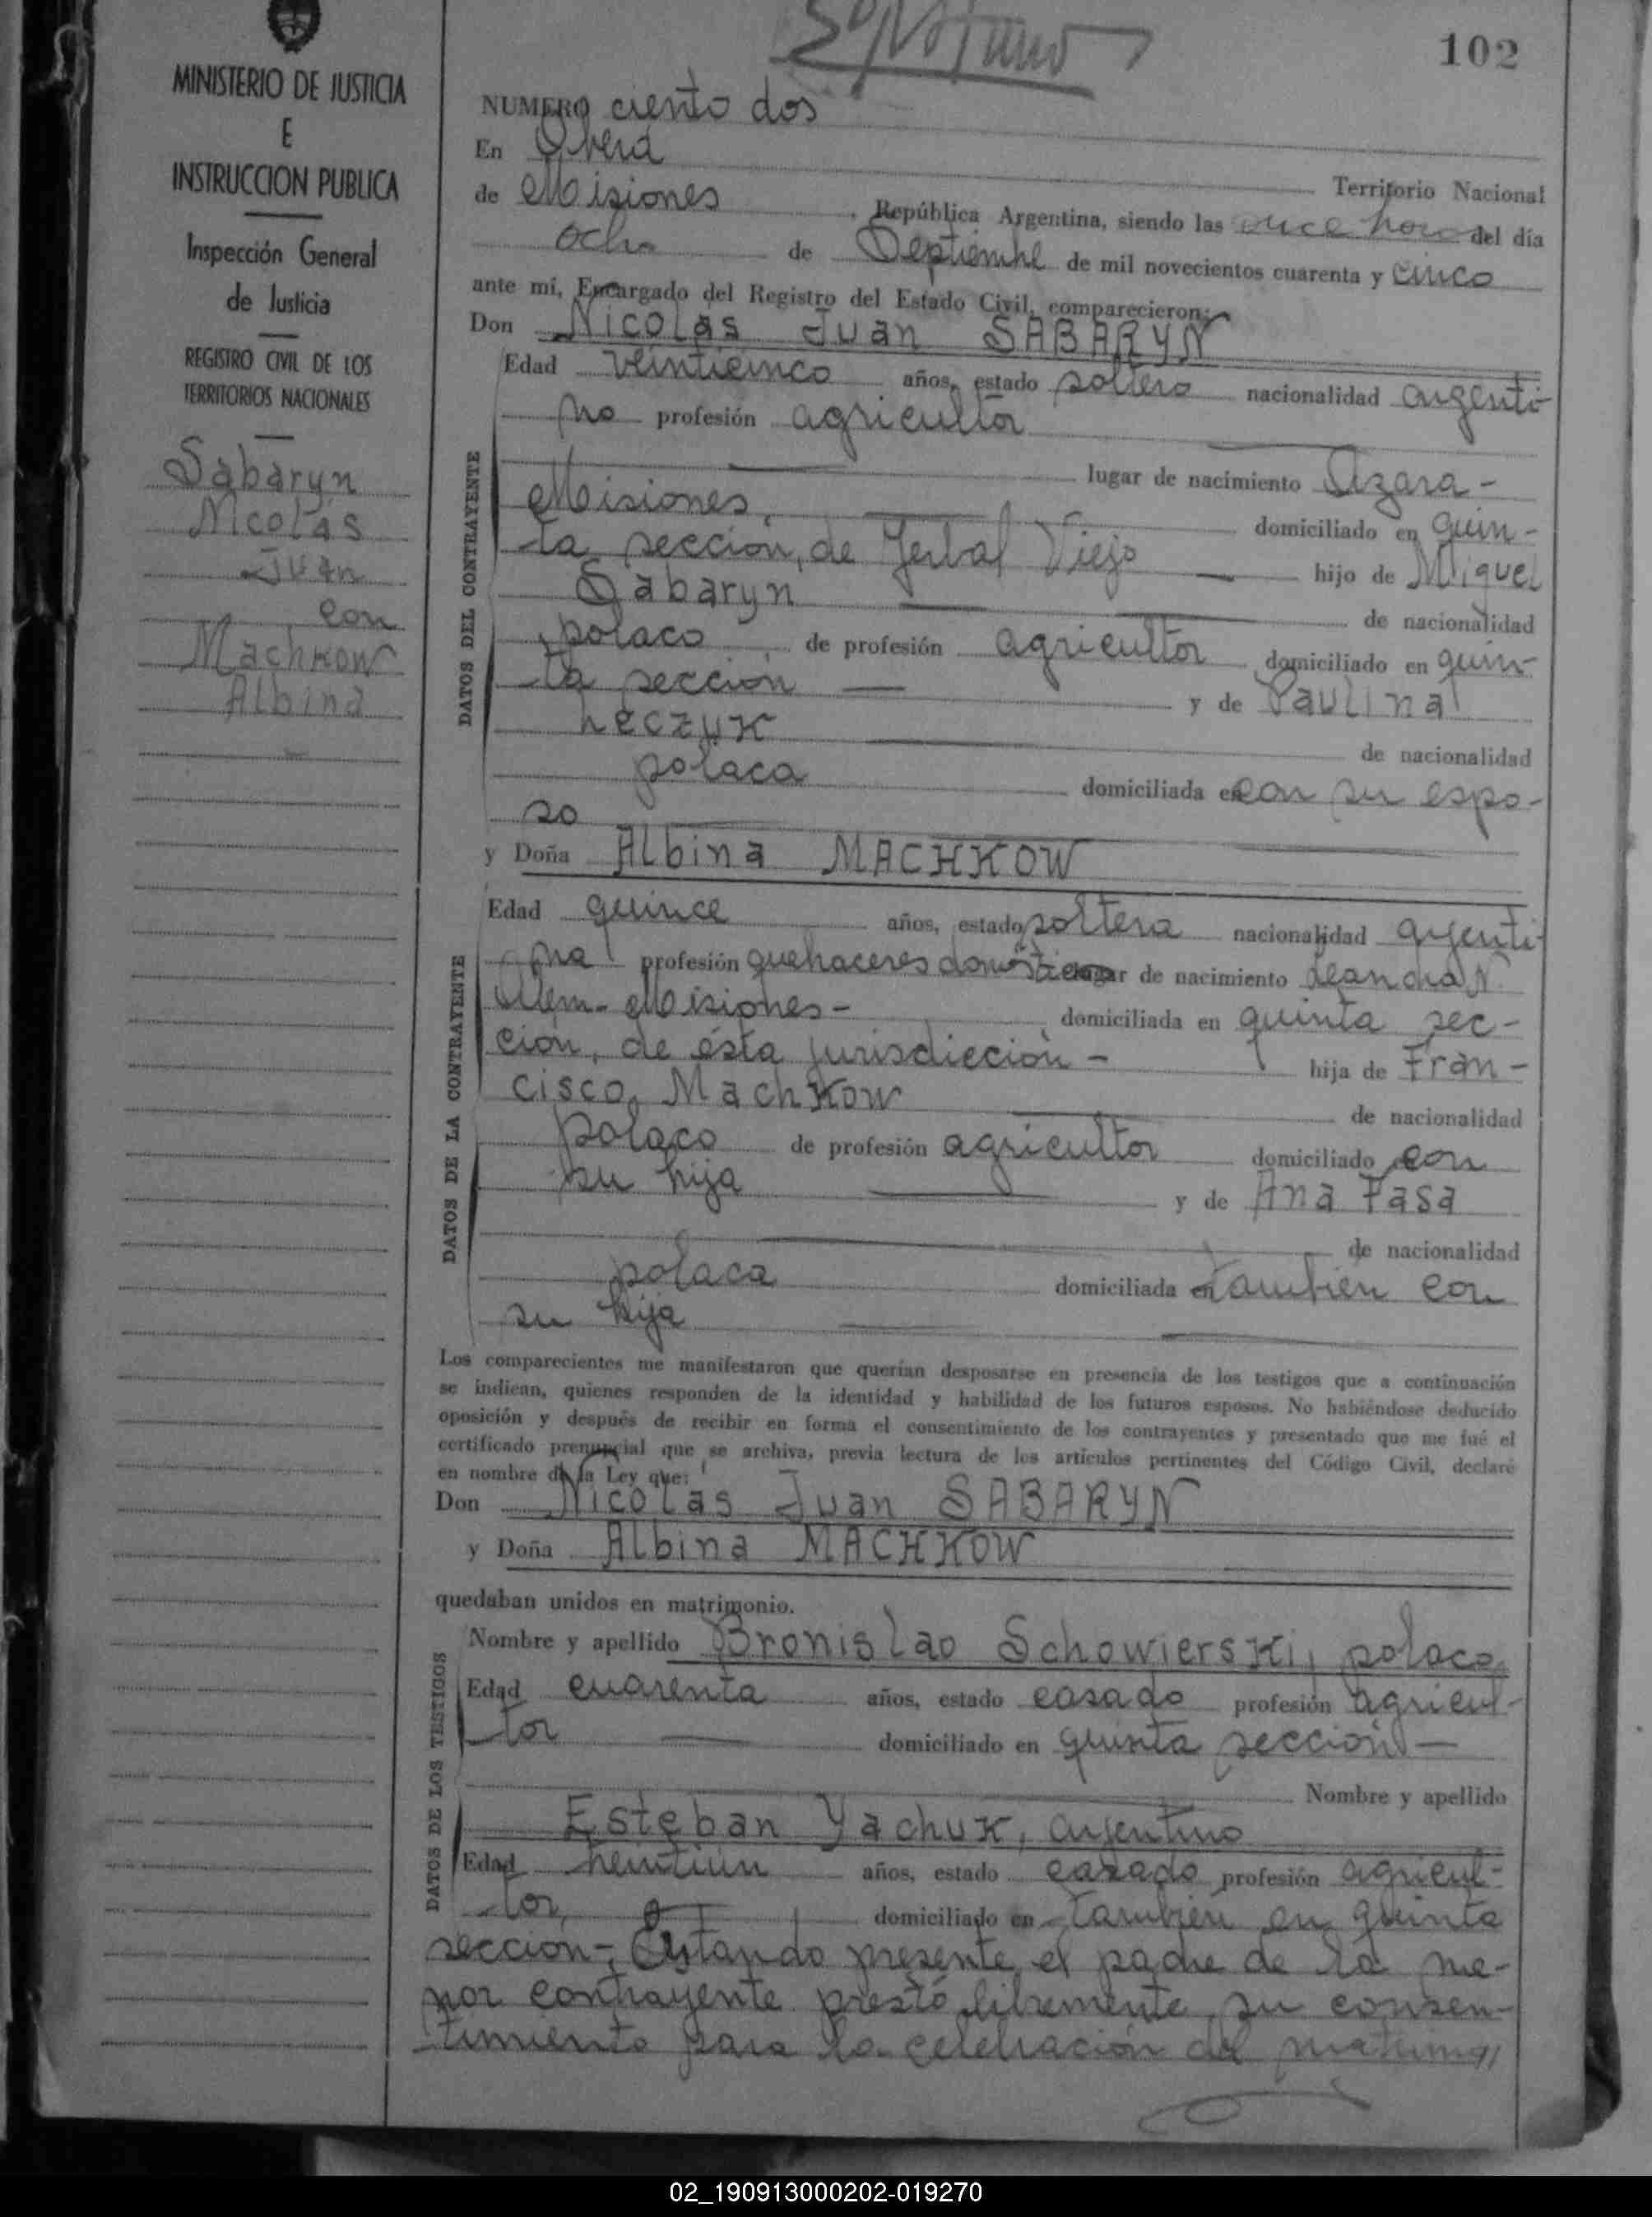 102
MINISTERIO DE JUSTICIA
E
INSTRUCCION PUBLICA
Inspección General
de Justicia
REGISTRO CIVIL DE LOS
TERRITORIOS NACIONALES
Sabaryn
Nicolás
Juan
con
Machkow
Albina
NUMERO ciento dos
En Oberá Territorio Nacional
de Misiones, República Argentina, siendo las once horas del día
ocho de Septiembre de mil novecientos cuarenta y cinco
ante mí, Encargado del Registro del Estado Civil, comparecieron:
Don Nicolás Juan SABARYN
DATOS DEL CONTRAYENTE
Edad veinticinco años, estado soltero nacionalidad argenti-
no profesión agricultor
lugar de nacimiento Azara-
Misiones, domiciliado en quin-
ta sección, de Yerbal Viejo hijo de Miguel
Sabaryn de nacionalidad
polaco de profesión agricultor domiciliado en quin-
ta sección y de Paulina
heczuk de nacionalidad
polaca domiciliada en con su espo-
so
y Doña Albina MACHKOW
DATOS DE LA CONTRAYENTE
Edad quince años, estado soltera nacionalidad argenti-
na profesión quehaceres domésticos lugar de nacimiento Leandro N.
Alem- Misiones- domiciliada en quinta sec-
ción, de ésta jurisdicción- hija de Fran-
cisco Machkow de nacionalidad
polaco de profesión agricultor domiciliado con
su hija y de Ana Fasa
de nacionalidad
polaca domiciliada en también con
su hija
Los comparecientes me manifestaron que querían desposarse en presencia de los testigos que a continuación
se indican, quienes responden de la identidad y habilidad de los futuros esposos. No habiéndose deducido
oposición y después de recibir en forma el consentimiento de los contrayentes y presentado que me fué el
certificado prenupcial que se archiva, previa lectura de los artículos pertinentes del Código Civil, declaré
en nombre de la Ley que:
Don Nicolás Juan SABARYN
y Doña Albina MACHKOW
quedaban unidos en matrimonio.
DATOS DE LOS TESTIGOS
Nombre y apellido Bronislao Schowierski, polaco
Edad cuarenta años, estado casado profesión agricul-
tor domiciliado en quinta sección-
Nombre y apellido
Esteban Yachuk, argentino
Edad veintiún años, estado casado profesión agricul-
tor, domiciliado en también en quinta
sección-; Estando presente el padre de la me-
nor contrayente prestó libremente su consen-
timiento para la celebración del matrimo
02_190913000202-019270